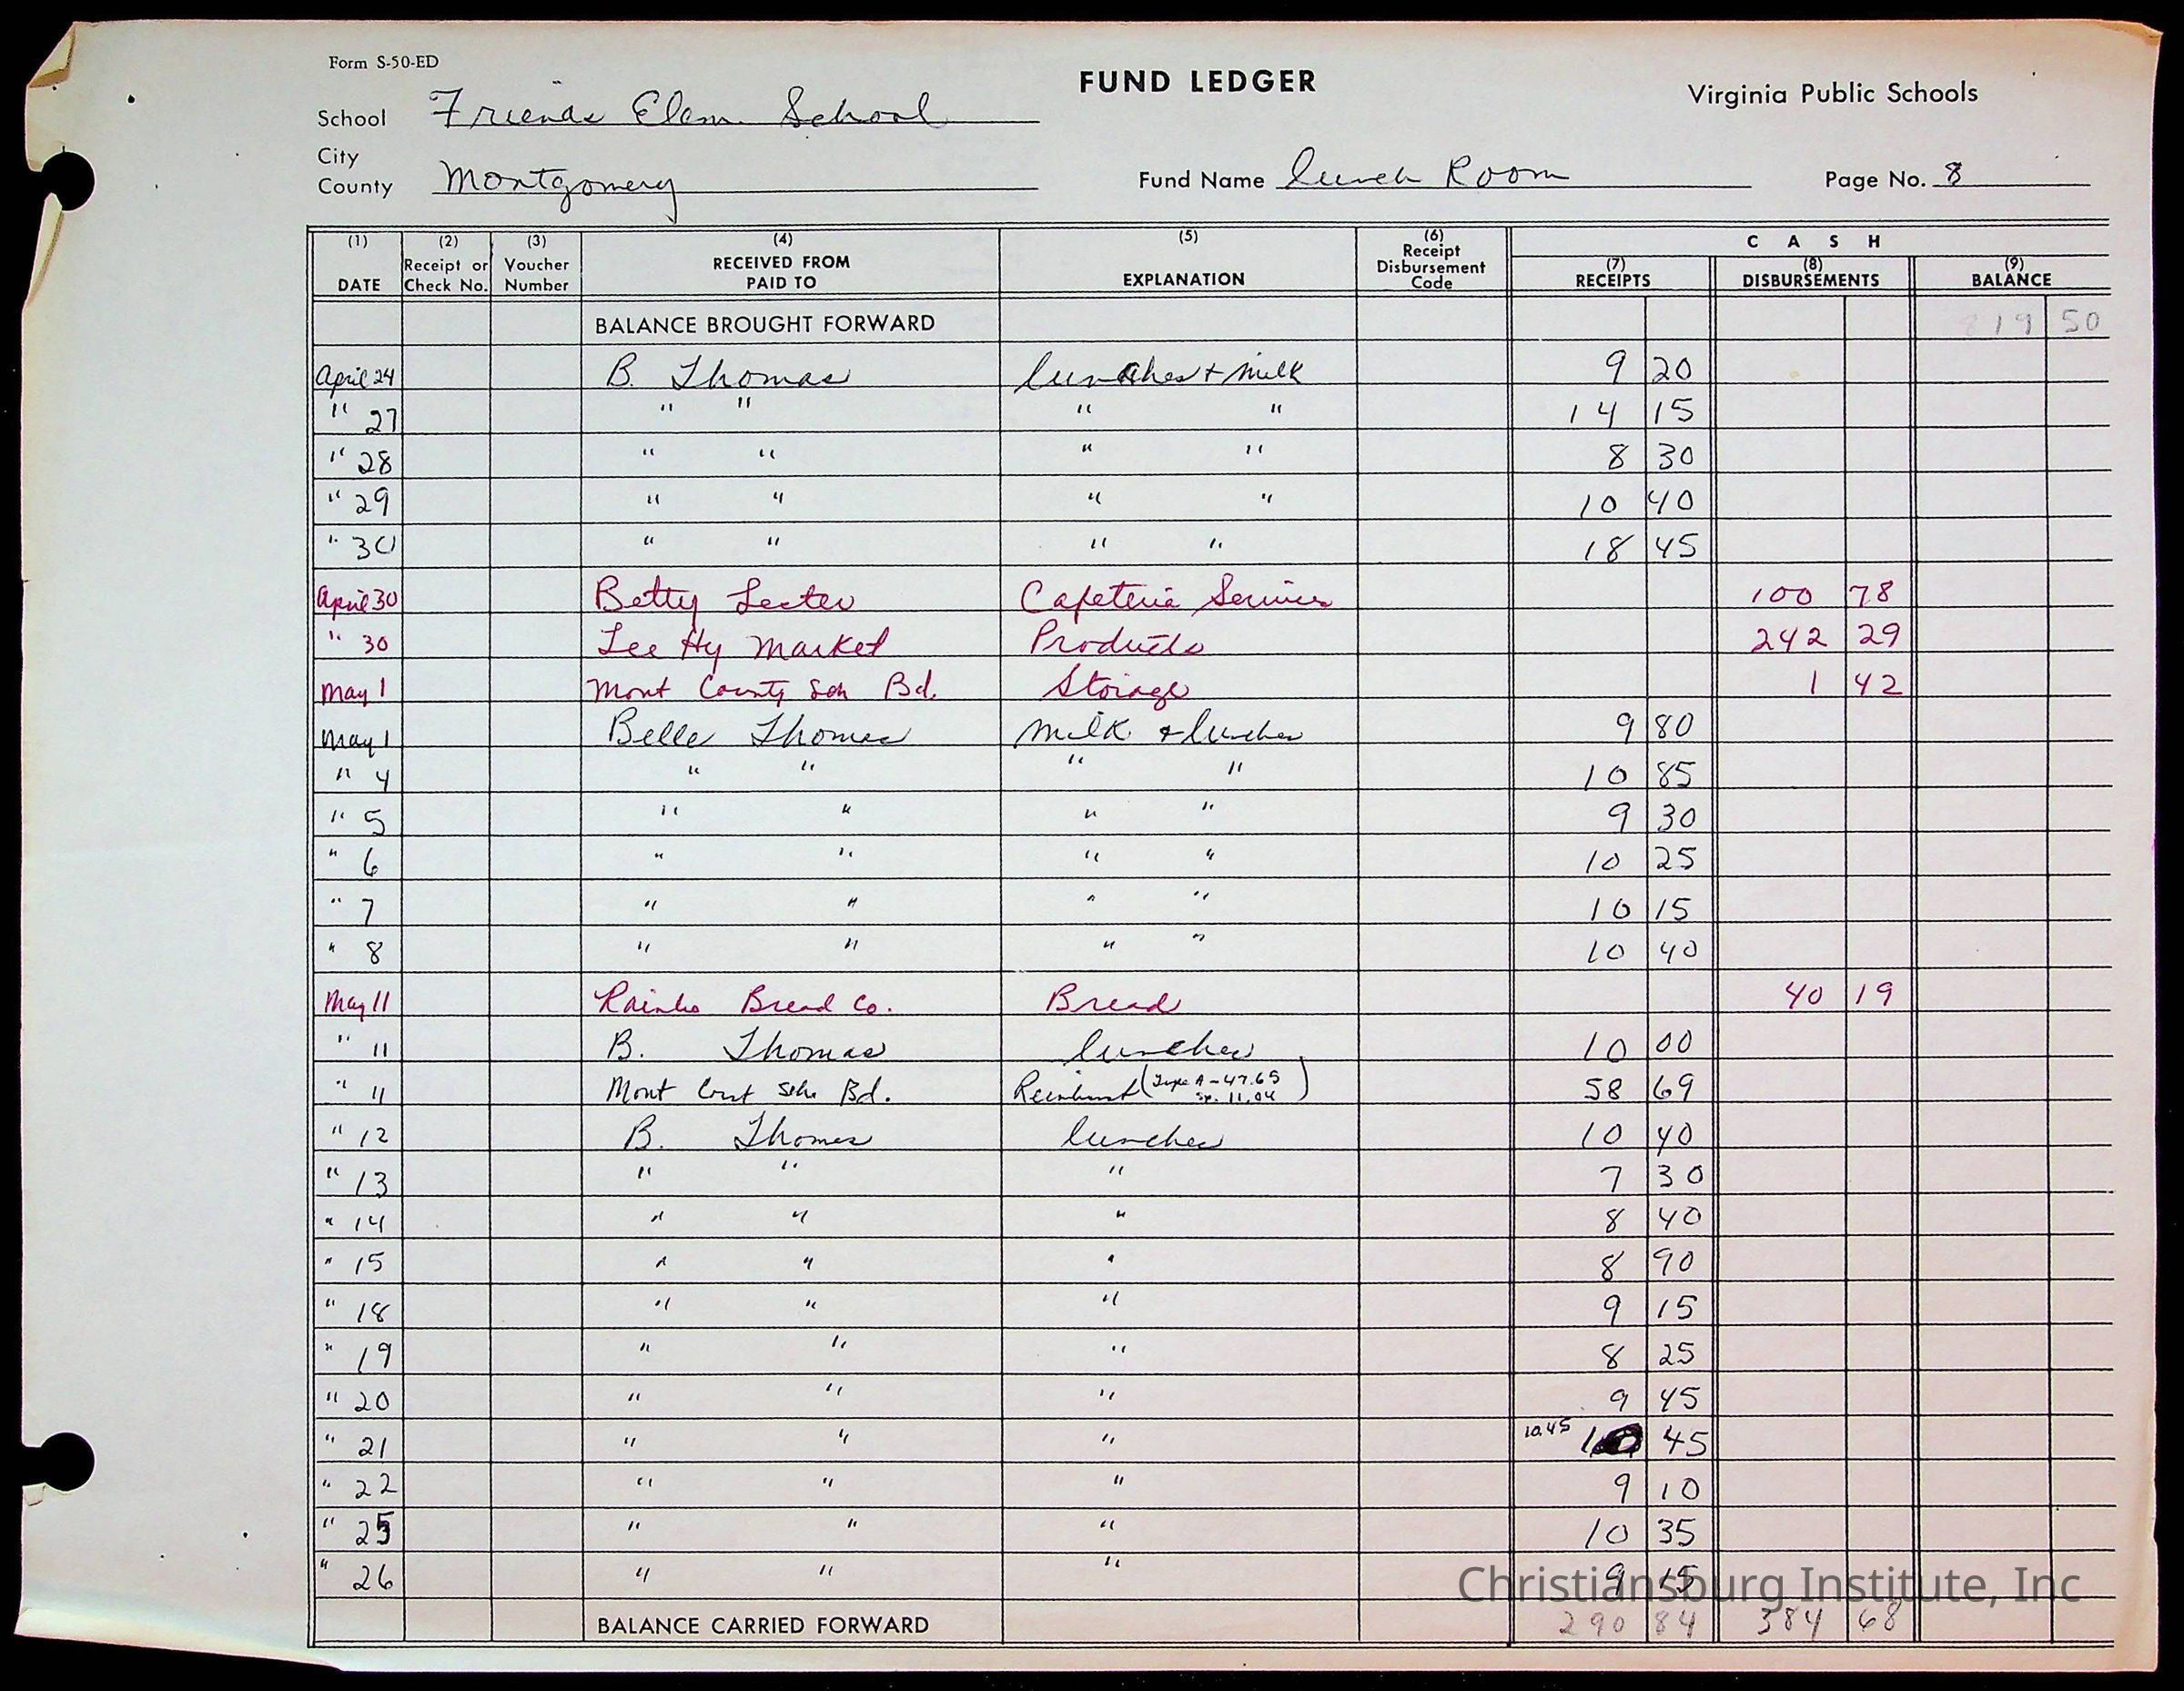 Form S-50-ED
FUND LEDGER
Virginia Public Schools
School Friends Elem. School
City
County Montgomery
Fund Name Lunch Room
Page No. 8
(1) (2) (3) (4) (5) (6) C A S H
DATE Receipt or Check No. Voucher Number RECEIVED FROM PAID TO EXPLANATION Receipt Disbursement Code (7) RECEIPTS (8) DISBURSEMENTS (9) BALANCE
BALANCE BROUGHT FORWARD 819 50
April 24 B. Thomas lunches + milk 9 20
" 27 " " " " 14 15
" 28 " " " " 8 30
" 29 " " " " 10 40
" 30 " " " " 18 45
April 30 Betty Lester Cafeteria Services 100 78
" 30 Lee Hy Market Products 242 29
May 1 Mont County Sch Bd. Storage 1 42
May 1 Belle Thomas milk + lunches 9 80
" 4 " " " " 10 85
" 5 " " " " 9 30
" 6 " " " " 10 25
" 7 " " " " 10 15
" 8 " " " " 10 40
May 11 Rainbo Bread Co. Bread 40 19
" 11 B. Thomas lunches 10 00
" 11 Mont Cout Sch Bd. Reimburst (Type A - 47.65 Sp. 11.04) 58 69
" 12 B. Thomas lunches 10 40
" 13 " " " 7 30
" 14 " " " 8 40
" 15 " " " 8 90
" 18 " " " 9 15
" 19 " " " 8 25
" 20 " " " 9 45
" 21 " " " 10.45 10 45
" 22 " " " 9 10
" 25 " " " 10 35
" 26 " " " 9 15
BALANCE CARRIED FORWARD 290 84 384 68
Christiansburg Institute, Inc